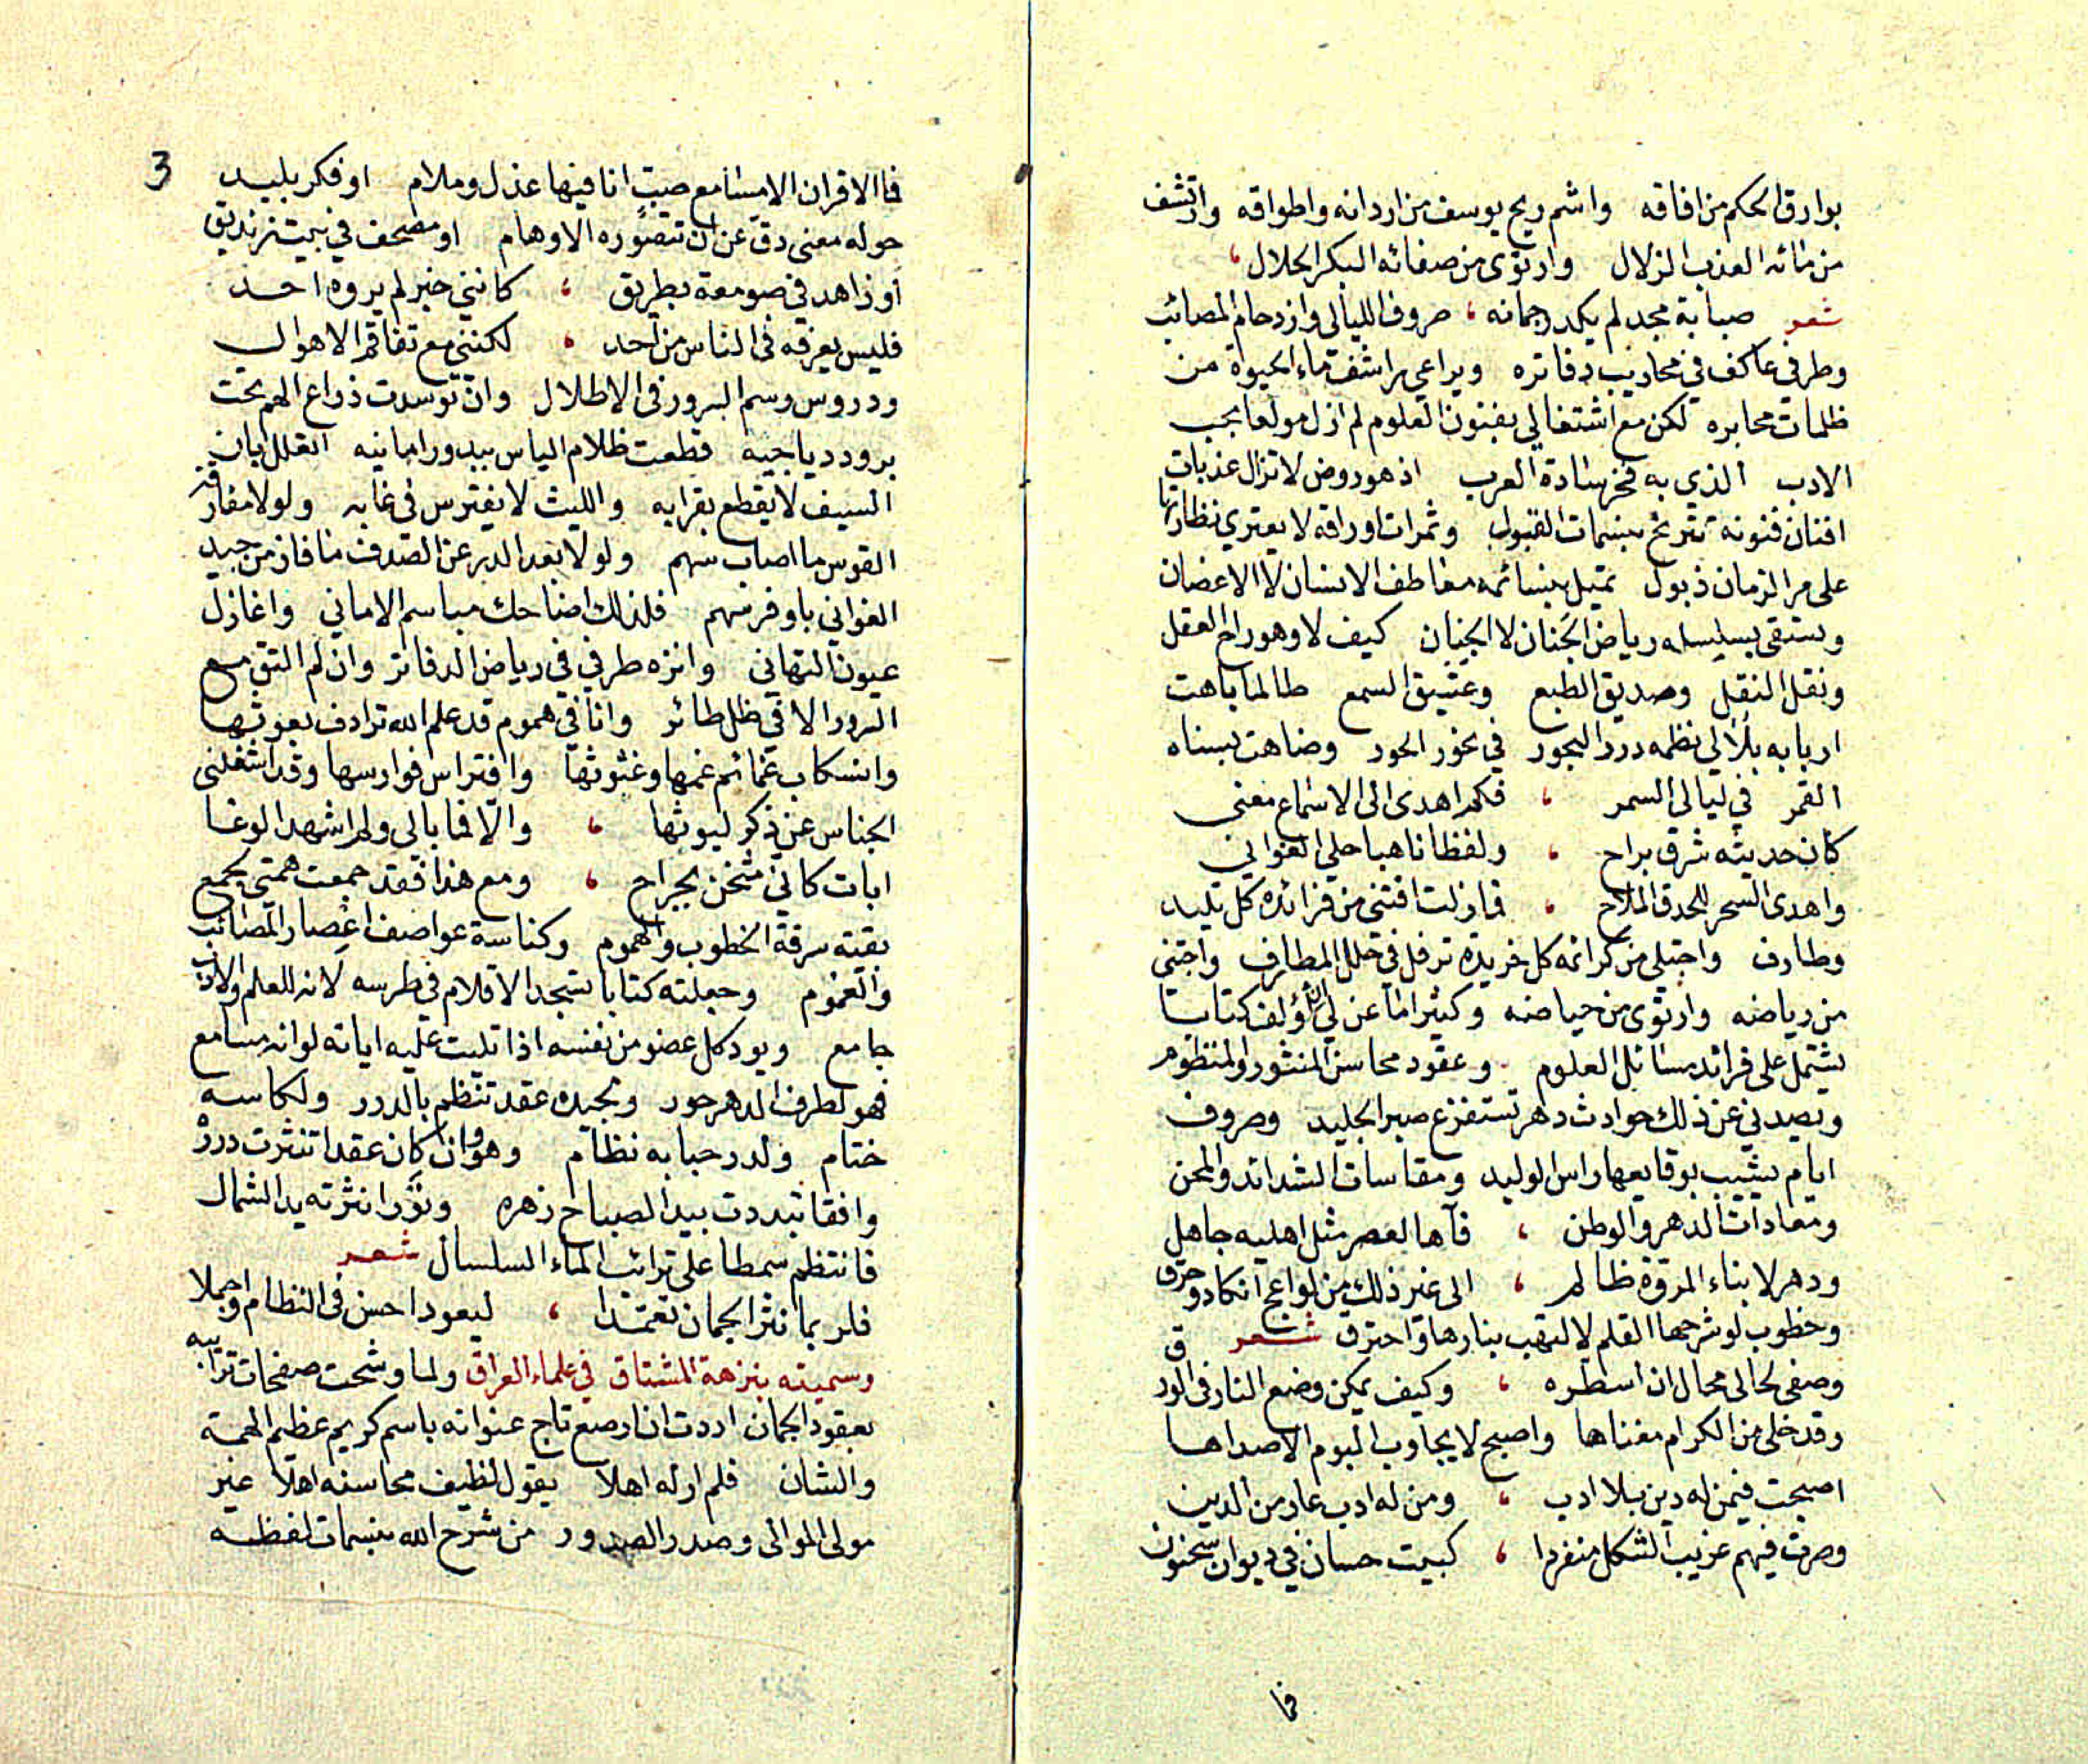 بوارق الحكم من افاقه واشم ريح يوسف من اردانه واطواقه وارتشف
من مائه العذب الزلال وارتوى من صفائه البكر الحلال
شعر صبابة مجد لم يكدر جمانه صروف الليالي وازدحام المصائب
وطرفي عاكف في محاريب دفاتره ويراعي يراشف ماء الحيوة من
ظلمات محابره لكن مع اشتغالي بفنون العلوم لم ازل مولعا بحب
الادب الذي به فخر سادة العرب اذ هو روض لا تزال عذبات
افنان فنونه تترنح بنسمات القبول وثمرات اوراقه لا يعتري نظارتها
على مر الزمان ذبول تميل بنسائمه معاطف الانسان لا الاغصان
وتستقى بسلساله رياض الجَنان لا الجِنان كيف لا وهو راح العقل
ونقل النقل وصديق الطبع وعشيق السمع طالما باهت
اربابه بلالي نظمه درر البحور في نحور الحور وضاهت بسناه
القمر في ليالي السمر فكم اهدى الى الاسماع معنى
كان حديثه شرق براح ولفظا ناهبا حلي الغواني
واهدى السحر للحدق الملاح فما زلت اقتني من فرائده كل تليد
وطارف واجتلي من كرائمه كل خريدة ترفل في حلل المطارف واجتني
من رياضه وارتوى من حياضه وكثيرا ما عن لي ان اؤلف كتابا
يشتمل على فرائد مسائل العلوم وعقود محاسن المنثور والمنظوم
ويصدني عن ذلك حوادث دهر تستفزع صبر الجليد وصروف
ايام يشيب بوقايعها راس الوليد ومقاسات الشدائد والمحن
ومعادات الدهر والوطن فآها لعصر مثل اهليه جاهل
ودهر لابناء المروّة ظالم الى غير ذلك من لواعج انكاد وحرق
وخطوب لو شرحها القلم لالتهب بنارها واحترق شعر
وصفي لحالي محال ان اسطره وكيف يمكن وضع النار في الورق
وقد خلى من الكرام مغناها واصبح لا يجاوب البوم الا صداها
اصبحت فيمن له دين بلا ادب ومن له ادب عار من الدين
وصرت فيهم غريب الشكل منفردا كبيت حسان في ديوان سحنون
فما
3
فما الاقران الامسنا مع صبّ انا فيها عذل وملام او فكر بليد
حوله معنى دق عن ان تتصوره الاوهام او مصحف في بيت زنديق
او زاهد في صومعة بطريق كانني خبر لم يروه احد
فليس يعرفه في الناس من احد لكنني مع تفاقم الاهوال
ودروس رسم السرور في الاطلال وان توسدت ذراع الهم تحت
برود دياجيه قطعت ظلام الياس ببدور امانيه اتعلل بان
السيف لا يقطع بقرابه والليث لا يفترس في غابه ولولا مفارقة
القوس ما اصاب سهم ولولا بعد الدر عن الصدف ما فاز من جيد
الغواني باوفر سهم فلذلك اضاحك مباسم الاماني واغازل
عيون التهاني وانزه طرفي في رياض الدفاتر وان لم التق مع
السرور الا في ظل طائر وانا في هموم قد علم الله ترادف بعوثها
وانسكاب غمائم غمها وغثوثها وافتراس فوارسها وقد اشغلني
الجناس عن ذكر ليوثها والّا فما بالي ولم اشهد الوغا
ابات كاني مثخن بجراح ومع هذا فقد جمعت همتي بجمع
بقية سرقة الخطوب والهموم وكناسة عواصف اعصار المصائب
والغموم وجعلته كتابا تسجد الاقلام في طرسه لانه للعلم والادب
جامع ويود كل عضو من نفسه اذا تليت عليه اياته لو انه مسامع
فهو لطرف الدهر حور وبجيده عقد تنظم بالدرر ولكاسه
ختام ولدر حبابه نظام وهو وان كان عقدا تنثرت درره
وافقا تبددت بيد الصباح زهره ونَوْرا نثرته يد الشمال
فانتظم سمطا على ترائب الماء السلسال شعر
فلربما نثر الجمان تعمّدا ليعود احسن في النظام واجملا
وسميته بنزهة المشتاق في علماء العراق ولما وشحت صفحات ترائبه
بعقود الجمان اردت ان ارصع تاج عنوانه باسم كريم عظيم الهمة
والشان فلم ار له اهلا يقول لضيف محاسنه اهلا غير
مولى الموالي وصدر الصدور من شرح الله بنسمات لفظه